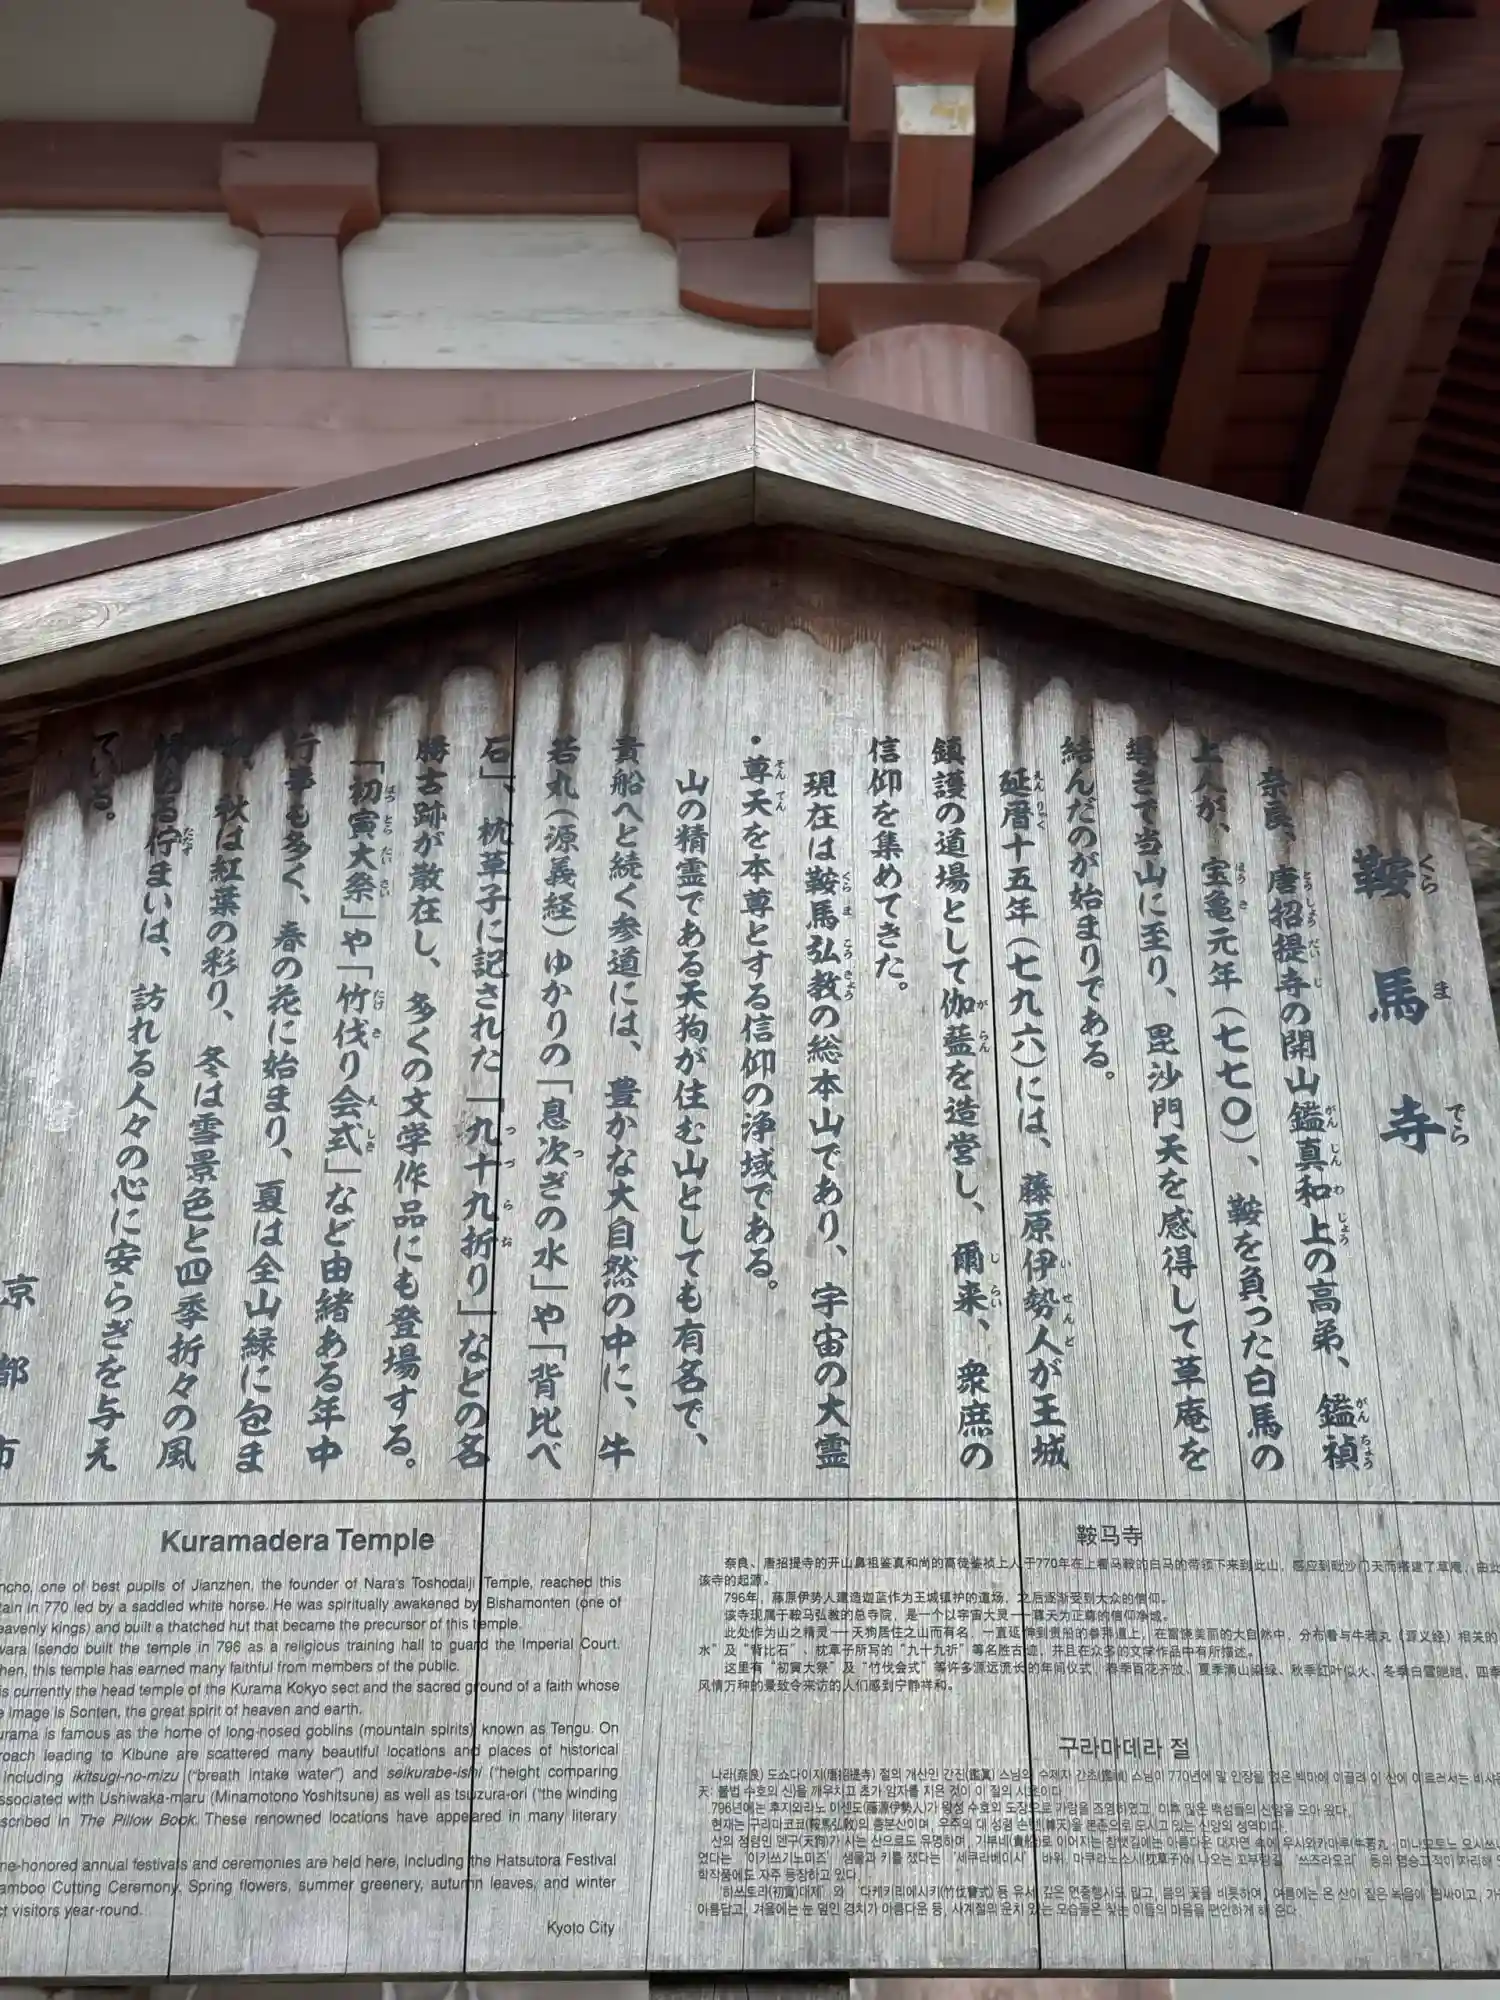 鞍馬寺
奈良、唐招提寺の開山鑑真和上の高弟、鑑禎
上人が、宝亀元年（七七〇）、鞍を負った白馬の
導きで当山に至り、毘沙門天を感得して草庵を
結んだのが始まりである。
延暦十五年（七九六）には、藤原伊勢人が王城
鎮護の道場として伽藍を造営し、爾来、衆庶の
信仰を集めてきた。
現在は鞍馬弘教の総本山であり、宇宙の大霊
・尊天を本尊とする信仰の浄域である。
山の精霊である天狗が住む山としても有名で、
貴船へと続く参道には、豊かな大自然の中に、牛
若丸（源義経）ゆかりの「息次ぎの水」や「背比べ
石」、枕草子に記された「九十九折り」などの名
勝古跡が散在し、多くの文学作品にも登場する。
「初寅大祭」や「竹伐り会式」など由緒ある年中
行事も多く、春の花に始まり、夏は全山緑に包ま
れ、秋は紅葉の彩り、冬は雪景色と四季折々の風
情ある佇まいは、訪れる人々の心に安らぎを与え
ている。
京都市
Kuramadera Temple
ncho, one of best pupils of Jianzhen, the founder of Nara's Toshodaiji Temple, reached this
tain in 770 led by a saddled white horse. He was spiritually awakened by Bishamonten (one of
eavenly kings) and built a thatched hut that became the precursor of this temple.
wara Isendo built the temple in 796 as a religious training hall to guard the Imperial Court.
hen, this temple has earned many faithful from members of the public.
is currently the head temple of the Kurama Kokyo sect and the sacred ground of a faith whose
e image is Sonten, the great spirit of heaven and earth.
urama is famous as the home of long-nosed goblins (mountain spirits) known as Tengu. On
roach leading to Kibune are scattered many beautiful locations and places of historical
including ikitsugi-no-mizu ("breath intake water") and seikurabe-ishi ("height comparing
ssociated with Ushiwaka-maru (Minamotono Yoshitsune) as well as tsuzura-ori ("the winding
scribed in The Pillow Book. These renowned locations have appeared in many literary
me-honored annual festivals and ceremonies are held here, including the Hatsutora Festival
amboo Cutting Ceremony. Spring flowers, summer greenery, autumn leaves, and winter
ct visitors year-round.
Kyoto City
鞍马寺
奈良、唐招提寺的开山鼻祖鉴真和尚的高徒鉴祯上人于770年在上着马鞍的白马的带领下来到此山，感应到毗沙门天而搭建了草庵，由此
该寺的起源。
796年，藤原伊势人建造迦蓝作为王城镇护的道场，之后逐渐受到大众的信仰。
该寺现属于鞍马弘教的总寺院，是一个以宇宙大灵——尊天为正尊的信仰净域。
此处作为山之精灵——天狗居住之山而有名，一直延伸到贵船的参拜道上，在富饶美丽的大自然中，分布着与牛若丸（源义经）相关的
水”及“背比石”、枕草子所写的“九十九折”等名胜古迹，并且在众多的文学作品中有所描述。
这里有“初寅大祭”及“竹伐会式”等许多源远流长的年间仪式，春季百花齐放、夏季满山染绿、秋季红叶似火、冬季白雪皑皑，四季
风情万种的景致令来访的人们感到宁静祥和。
구라마데라 절
나라(奈良) 도쇼다이지(唐招提寺) 절의 개산인 간진(鑑眞) 스님의 수제자 간초(鑑禎) 스님이 770년에 말 안장을 얹은 백마에 이끌려 이 산에 이르러서는 비사문
天: 불법 수호의 신)을 깨우치고 초가 암자를 지은 것이 이 절의 시초이다.
796년에는 후지와라노 이센도(藤原伊勢人)가 왕성 수호의 도장으로 가람을 조영하였고, 이후 많은 백성들의 신앙을 모아 왔다.
현재는 구라마코쿄(鞍馬弘敎)의 총본산이며, 우주의 대 성령 손텐(尊天)을 본존으로 모시고 있는 신앙의 성역이다.
산의 정령인 덴구(天狗)가 사는 산으로도 유명하며, 기부네(貴船)로 이어지는 참뱃길에는 아름다운 대자연 속에 우시와카마루(牛若丸・미나모토노 요시쓰네
였다는 '이키쓰기노미즈' 샘물과 키를 쟀다는 '세쿠라베이시' 바위, 마쿠라노소시(枕草子)에 나오는 꼬부랑길 '쓰즈라오리' 등의 명승고적이 자리해
학작품에도 자주 등장하고 있다.
'하쓰토라(初寅)대제' 와 '다케키리에시키(竹伐會式)' 등 유서 깊은 연중행사도 많고, 봄의 꽃을 비롯하여, 여름에는 온 산이 짙은 녹음에 휩싸이고, 가
아름답고, 겨울에는 눈 덮인 경치가 아름다운 등, 사계절의 운치 있는 모습들은 찾는 이들의 마음을 편안하게 해 준다.